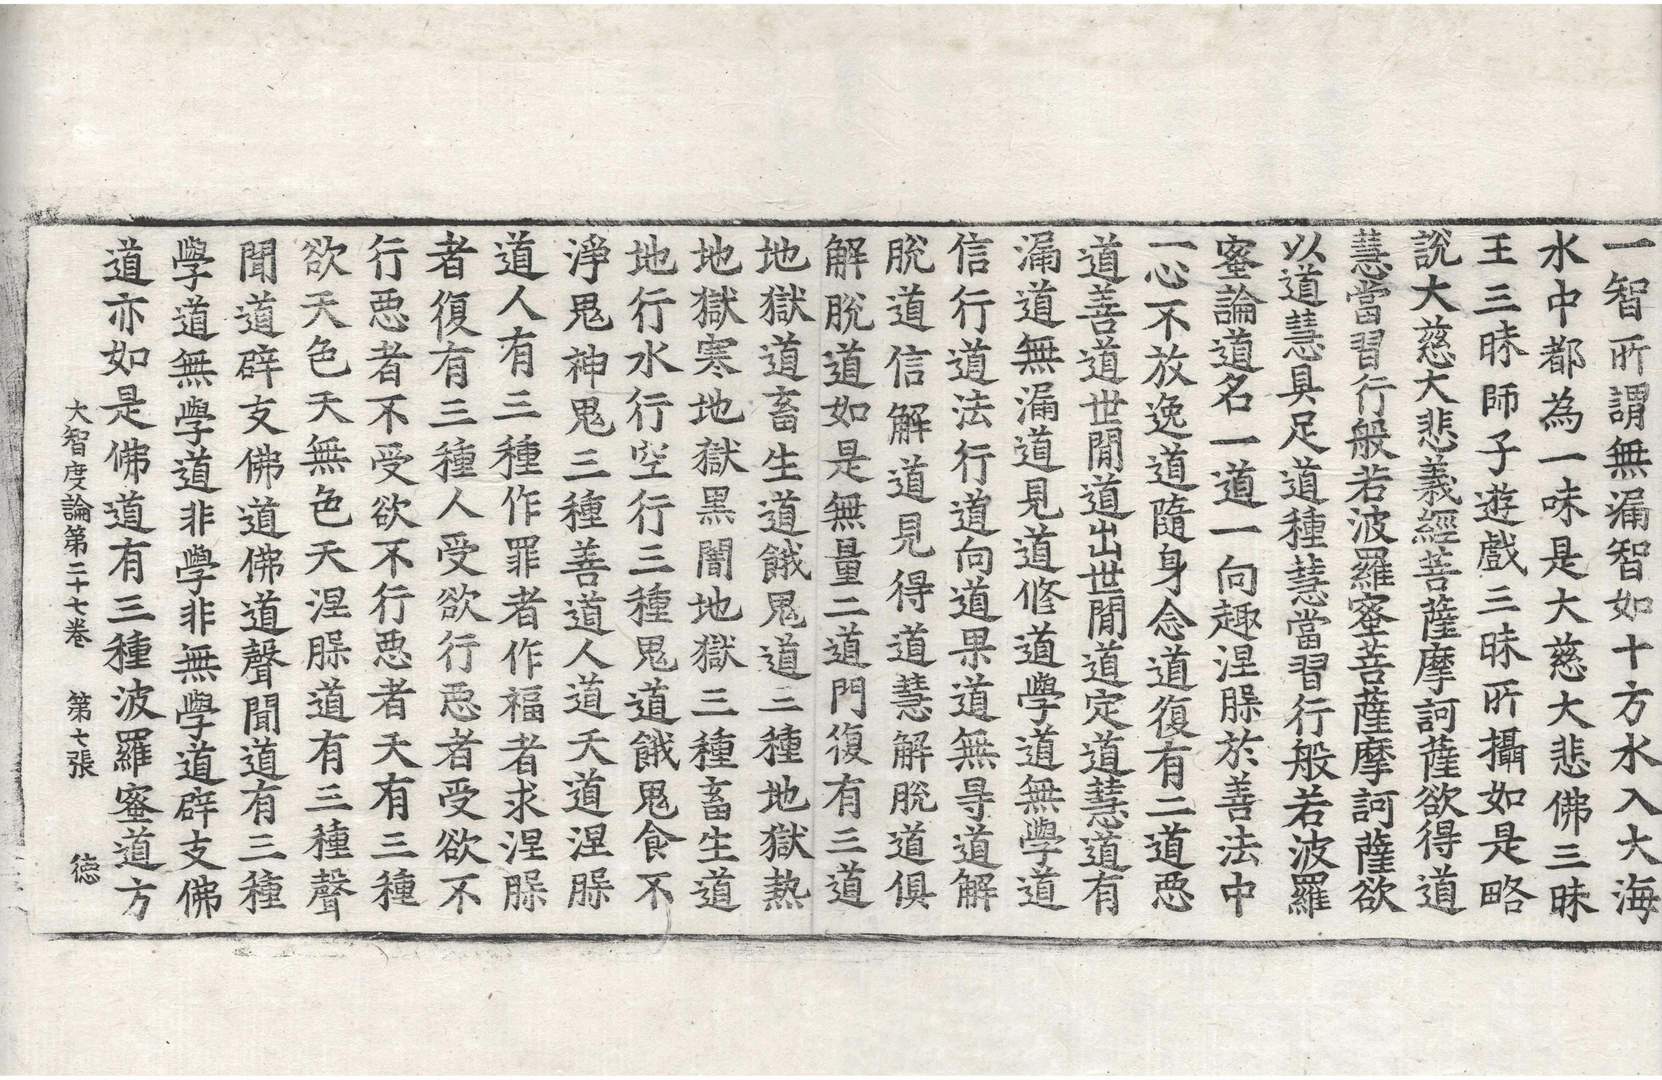 一智所謂無漏智如十方水入大海
水中都為一味是大慈大悲佛三昧
王三昧師子遊戲三昧所攝如是略
說大慈大悲義經菩薩摩訶薩欲得道
慧當習行般若波羅蜜菩薩摩訶薩欲
以道慧具足道種慧當習行般若波羅
蜜論道名一道一向趣涅槃於善法中
一心不放逸道隨身念道復有二道惡
道善道世閒道出世閒道定道慧道有
漏道無漏道見道修道學道無學道
信行道法行道向道果道無㝵道解
脫道信解道見得道慧解脫道俱
解脫道如是無量二道門復有三道
地獄道畜生道餓鬼道三種地獄熱
地獄寒地獄黑闇地獄三種畜生道
地行水行空行三種鬼道餓鬼食不
淨鬼神鬼三種善道人道天道涅槃
道人有三種作罪者作福者求涅槃
者復有三種人受欲行惡者受欲不
行惡者不受欲不行惡者天有三種
欲天色天無色天涅槃道有三種聲
聞道辟支佛道佛道聲聞道有三種
學道無學道非學非無學道辟支佛
道亦如是佛道有三種波羅蜜道方
大智度論第二十七卷 第七張 德